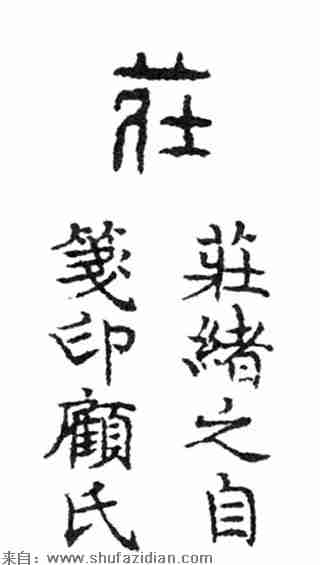 莊
莊緒之自
箋印顧氏
来自：www.shufazidian.com